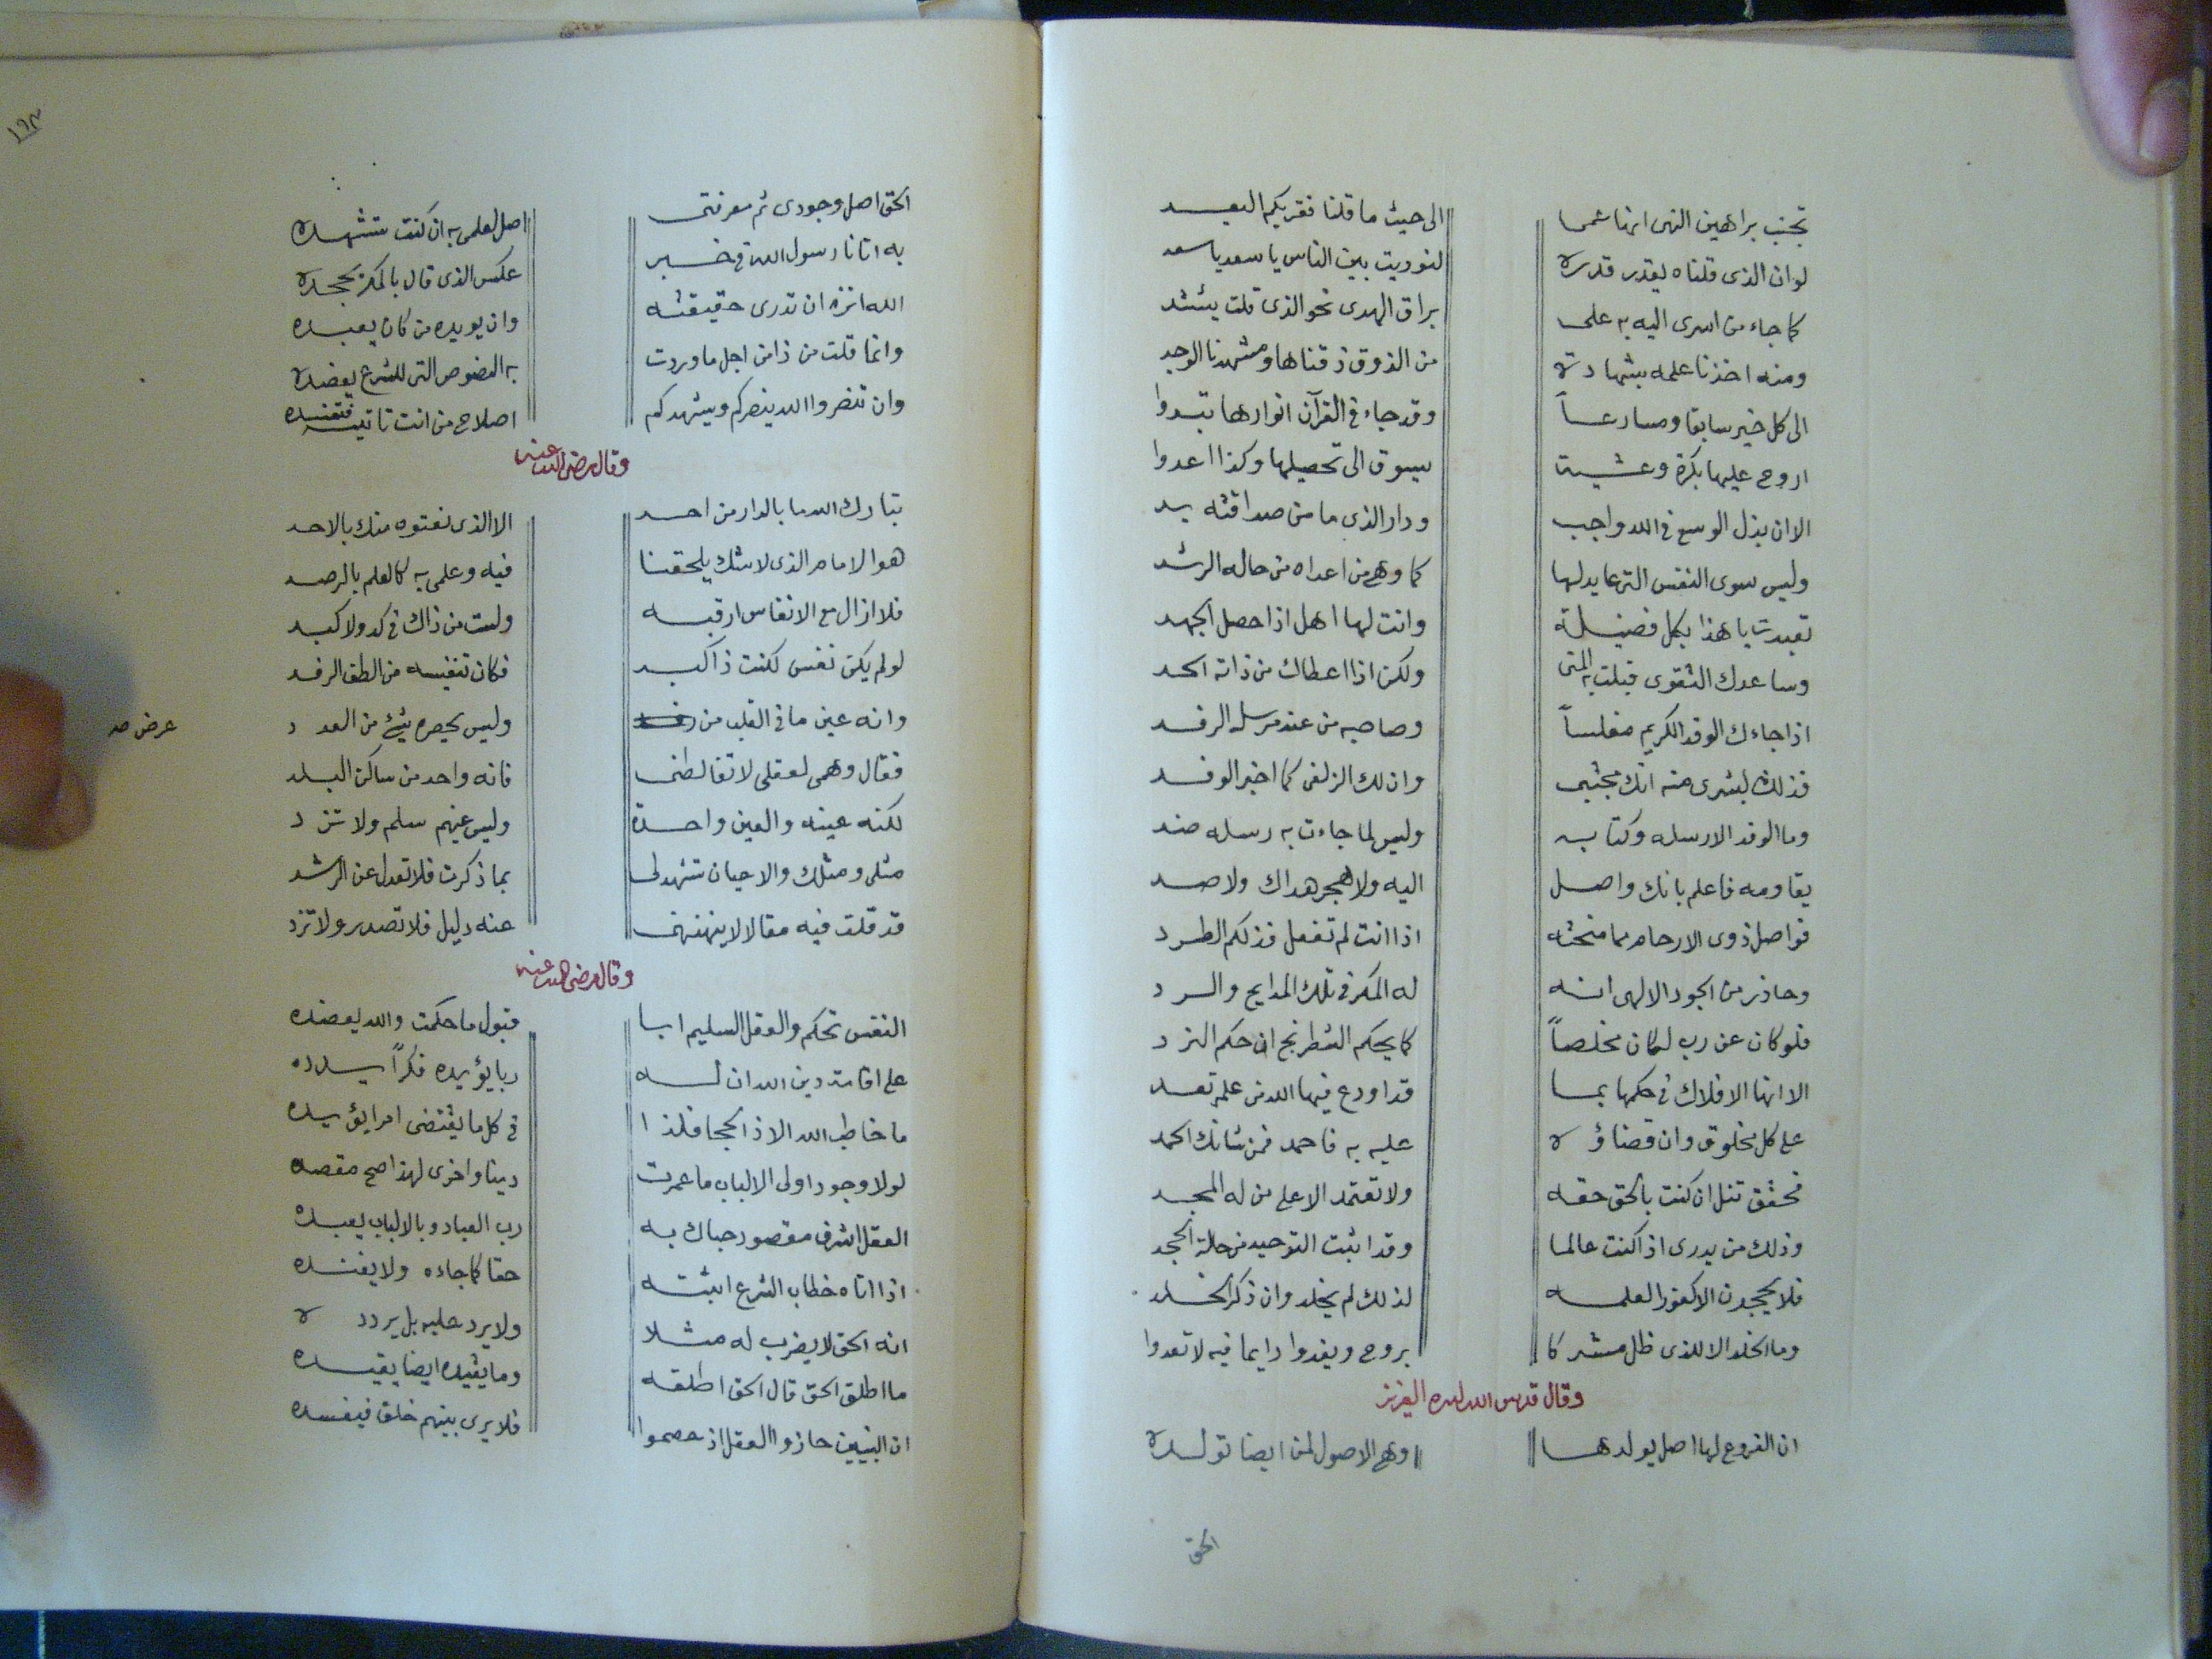 تجنب براهين النهى انها عمى الى حيث ما قلنا فقربكم البعد
لو ان الذى قلناه يقدر قدره لنوديت بين الناس يا سعد يا سعد
كما جاء من اسرى اليه به على براق الهدى نحو الذى قلت يشتد
ومنه اخذنا علمه بشهادة من الذوق ذقناها ومشهدنا الوجد
الى كل خير سابقا ومسارعاً وقد جاء فى القرآن انوارها تبدوا
اروح عليها بكرة وعشية بسوق الى تحصيلها وكذا اغدوا
الا ان بذل الوسع فى الله واجب ودار الذى ما من صداقته بد
وليس سوى النفس التى عابد لها كما وهى من اعداه من حاله الرشد
تعبدت يا هذا بكل فضيلة وانت لها اهل اذا حصل الجهد
وساعدك التقوى فبلت به المنى ولكن اذا اعطاك من ذاته الحد
اذا جاءك الوفد الكريم مغلساً وصاحبه من عند مرسله الرفد
فذلك بشرى منه انك مجتبى وان لك الزلفى كما اخبر الوفد
وما الوفد الا رسله وكتابه وليس لما جاءت به رسله ضد
يقاومه فاعلم بانك واصل اليه ولا هجر هداك ولا صد
فواصل ذوى الارحام مما منحته اذا انت لم تفعل فذلكم الطرد
وحاذر من الجود الالهى انه له المكر فى تلك المدايح والسرد
فلو كان عن رب لكان مخلصاً كما يحكم الشطرنج ان حكم النرد
الا انها الافلاك فى حكمها بما قد اودع فيها الله من علم تعد
على كل مخلوق وان قضاؤه عليه به فاحمد فمن شانك الحمد
فحقق تنل ان كنت بالحق حقه ولا تعتمد الا على من له المجد
وذلك من يدرى اذا كنت عالما وقد اثبت التوحيد من حلة الجحد
فلا يجحدن الا كفورا لعلمه لذلك لم يخلد وان ذكر الخلد
وما الخلد الا للذى ظل مشركا يروح ويغدوا دايما فيه لا تعدوا
وقال قدس الله سره العزيز
ان الفروع لها اصل يولدها وهى الاصول لمن ايضا تولده
الحق
١٩٣
الحق اصل وجودى ثم معرفتى اصل لعلمى به ان كنت تشهده
به اتانا رسول الله فى خبر عكس الذى قال بالمكر يجحده
الله انزه ان تدرى حقيقته وان يويده من كان يعبده
وانما قلت من ذا من اجل ما وردت به النصوص التى للشرع يعضده
وان تنصروا الله ينصركم ويشهدكم اصلاح من انت تاتيه فتفسده
وقال رضى الله عنه
تبارك الله ما بالدار من احد الا الذى نعتوه منك بالاحد
هو الامام الذى لا شك يلحقنا فيه وعلمى به كالعلم بالرصد
فلا ازال مع الانفاس ارقبه ولست من ذاك فى كد ولا كبد
لو لم يكن نفس لكنت ذا كبد فكان تنفيسه من الطف الرفد
وانه عين ما فى القلب من وليس يحصره شىء من العدد
عرض صد
فقال وهمى لعقلى لا تغالطنى فانه واحد من ساكن البلد
لكنه عينه والعين واحدة وليس عنهم سلم ولا تزد
مثلى ومثلك والاحيان تشهد لى بما ذكرت فلا تعدل عن الرشد
قد قلت فيه مقالا لا ينهنهنى عنه دليل فلا تصدر ولا تزد
وقال رضى الله عنه
النفس تحكم والعقل السليم ابا قبول ما حكمت والله يعضده
على اقامة دين الله ان له ربا يؤيده فكراً يسدده
ما خاطب الله الا ذا الحجا فلذا فى كل ما يقتضى امرا يؤيده
لولا وجود اولى الالباب ما عمرت دينا واخرى لهذا صح مقصده
العقل اشرف مقصود حباك به رب العباد وبالالباب يعبده
اذا اتاه خطاب الشرع اثبته حقا كما جاءه ولا يفنده
انه الحق لا يضرب له مثلا ولا يرد عليه بل يردده
ما اطلق الحق قال الحق اطلقه وما يقيده ايضا يقيده
ان النبيين حازوا العقل اذ عصموا فلا يرى بينهم خلق فيفسده